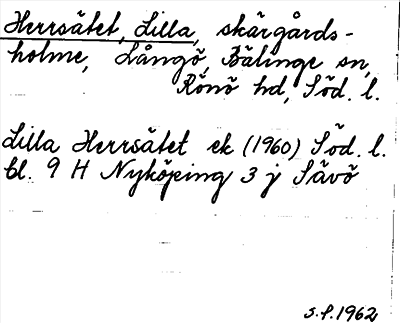 Herrsätet, Lilla, skärgårds-
holme, Långö, Bälinge sn,
Rönö hd, Söd. l.
Lilla Herrsätet ek (1960) Söd. l.
bl. 9 H Nyköping 3 j Sävö
s.f. 1962